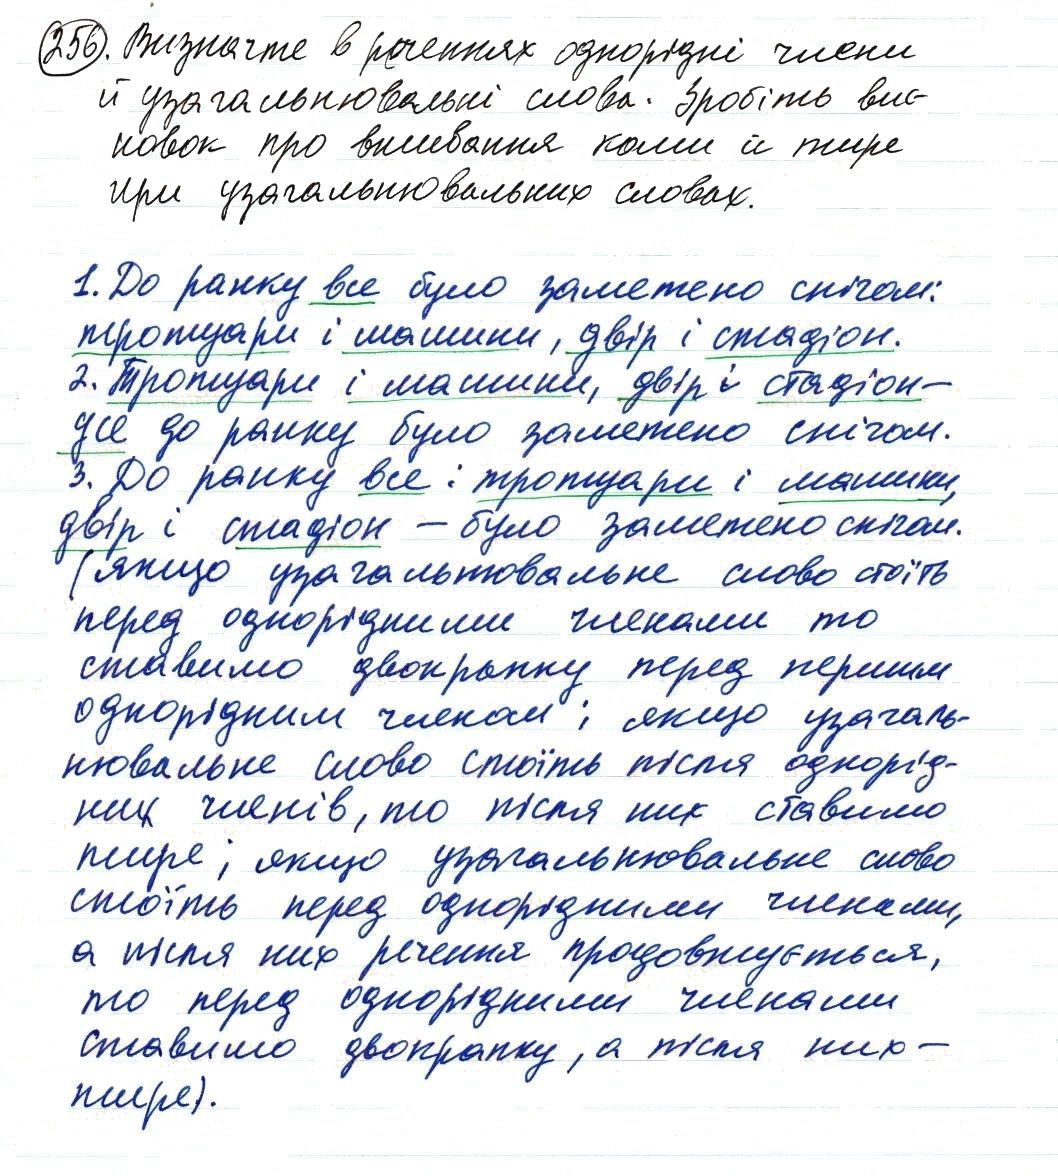 256. Визначте в реченнях однорідні члени
й узагальнювальні слова. Зробіть вис-
новок про вживання коми й тире
при узагальнювальних словах.
1. До ранку все було заметено снігом:
тротуари і машини, двір і стадіон.
2. Тротуари і машини, двір і стадіон —
усе до ранку було заметено снігом.
3. До ранку все : тротуари і машини,
двір і стадіон — було заметено снігом.
(якщо узагальнювальне слово стоїть
перед однорідними членами то
ставимо двокрапку перед першим
однорідним членом ; якщо узагаль-
нювальне слово стоїть після однорід-
них членів, то після них ставимо
тире ; якщо узагальнювальне слово
стоїть перед однорідними членами,
а після них речення продовжується,
то перед однорідними членами
ставимо двокрапку, а після них —
тире).